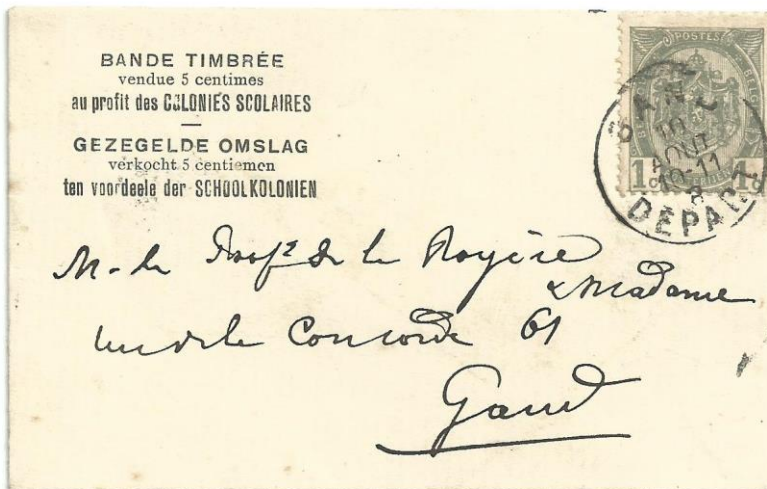 BANDE TIMBRÉE
vendue 5 centimes
au profit des COLONIES SCOLAIRES
GEZEGELDE OMSLAG
verkocht 5 centiemen
ten voordeele der SCHOOLKOLONIEN
POSTES
1c 1c
GAND
10
AOUT
10-11
8
DÉPART
M. le Profr de la Royère
& Madame
rue de la Concorde 61
Gand